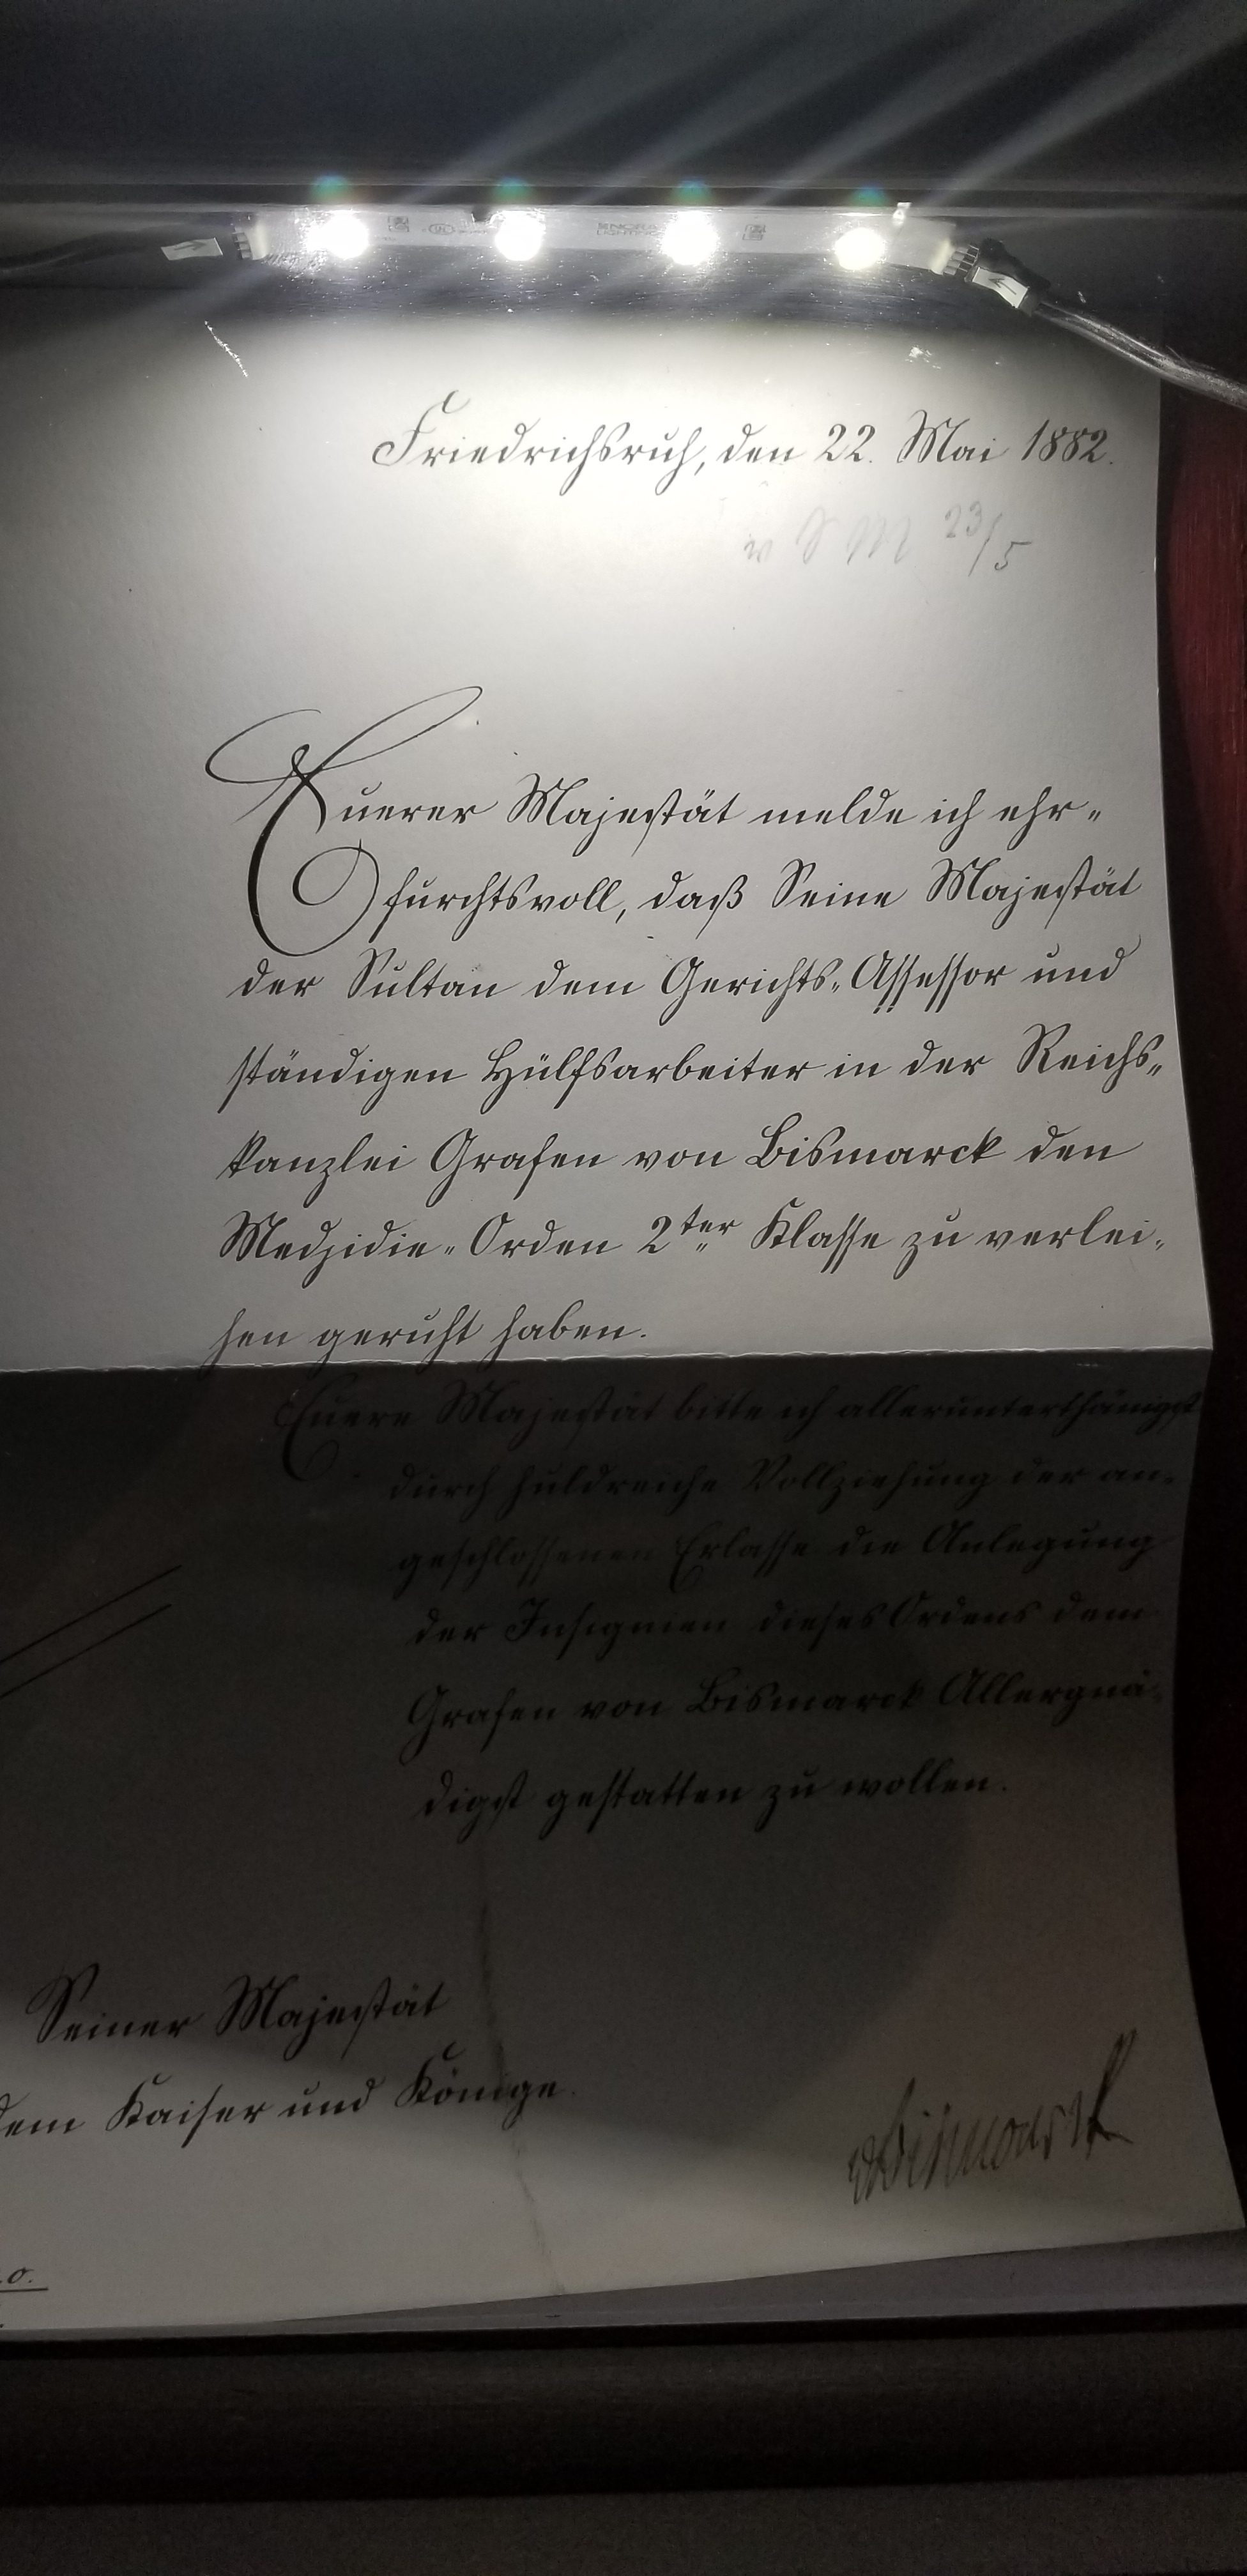 Friedrichsruh, den 22. Mai 1882.
v S M 23/5
Euerer Majestät melde ich ehr-
furchtsvoll, daß Seine Majestät
der Sultan dem Gerichts-Assessor und
ständigen Hülfsarbeiter in der Reichs-
kanzlei Grafen von Bismarck den
Medjidie-Orden 2ter Klasse zu verlei-
hen geruht haben.
Euere Majestät bitte ich allerunterthänigst
durch huldreiche Vollziehung der an-
geschlossenen Erlasse die Anlegung
der Insignien dieses Ordens dem
Grafen von Bismarck Allergnä-
digst gestatten zu wollen.
Seiner Majestät
dem Kaiser und Könige.
v Bismarck